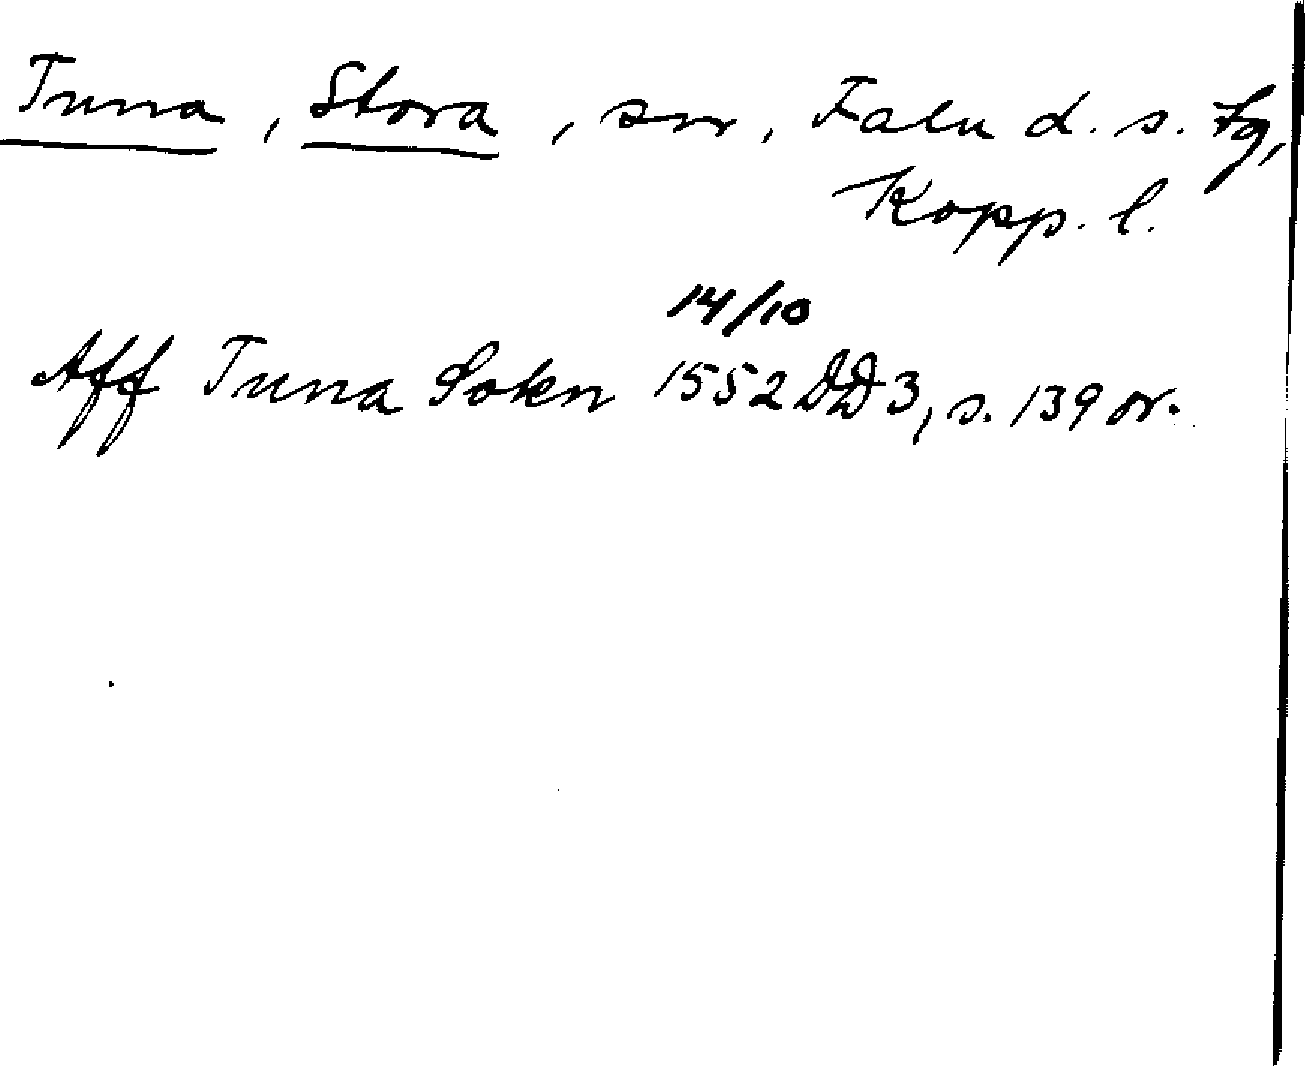 Tuna, Stora, sn, Falu d. s. fg,
Kopp. l.
14/10
Aff Tuna Sokn 1552 DD 3, s. 139 or.